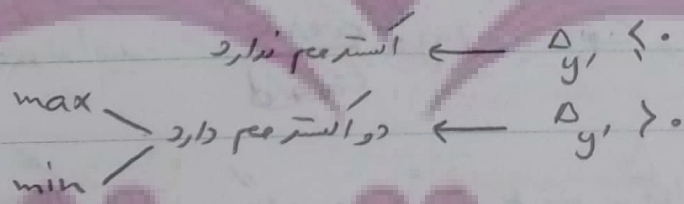 Δy' ≤ 0 ← اکسترمم ندارد
Δy' > 0 ← دو اکسترمم دارد
max
min